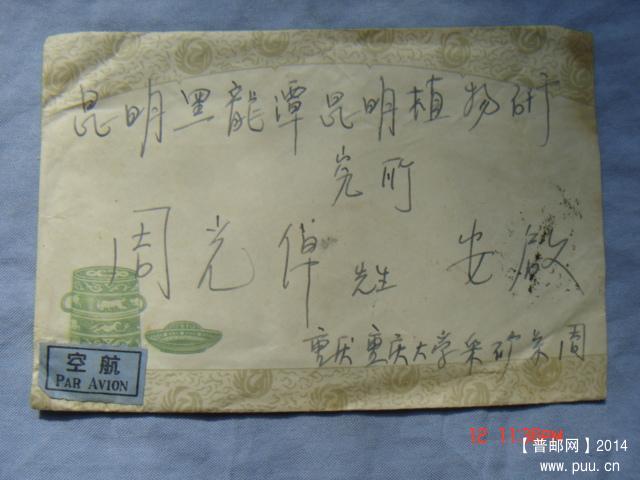 昆明黑龍潭昆明植物研
究所
周光倬 先生 安啟
重庆重庆大学采矿系周
空航
PAR AVION
12 11:36PM
【普邮网】2014
www.puu.cn